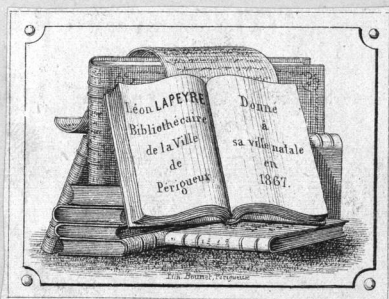 Léon LAPEYRE
Bibliothécaire
de la Ville
de
Périgueux
Donné
à
sa ville natale
en
1867.
Lith. Bounet, Périgueux